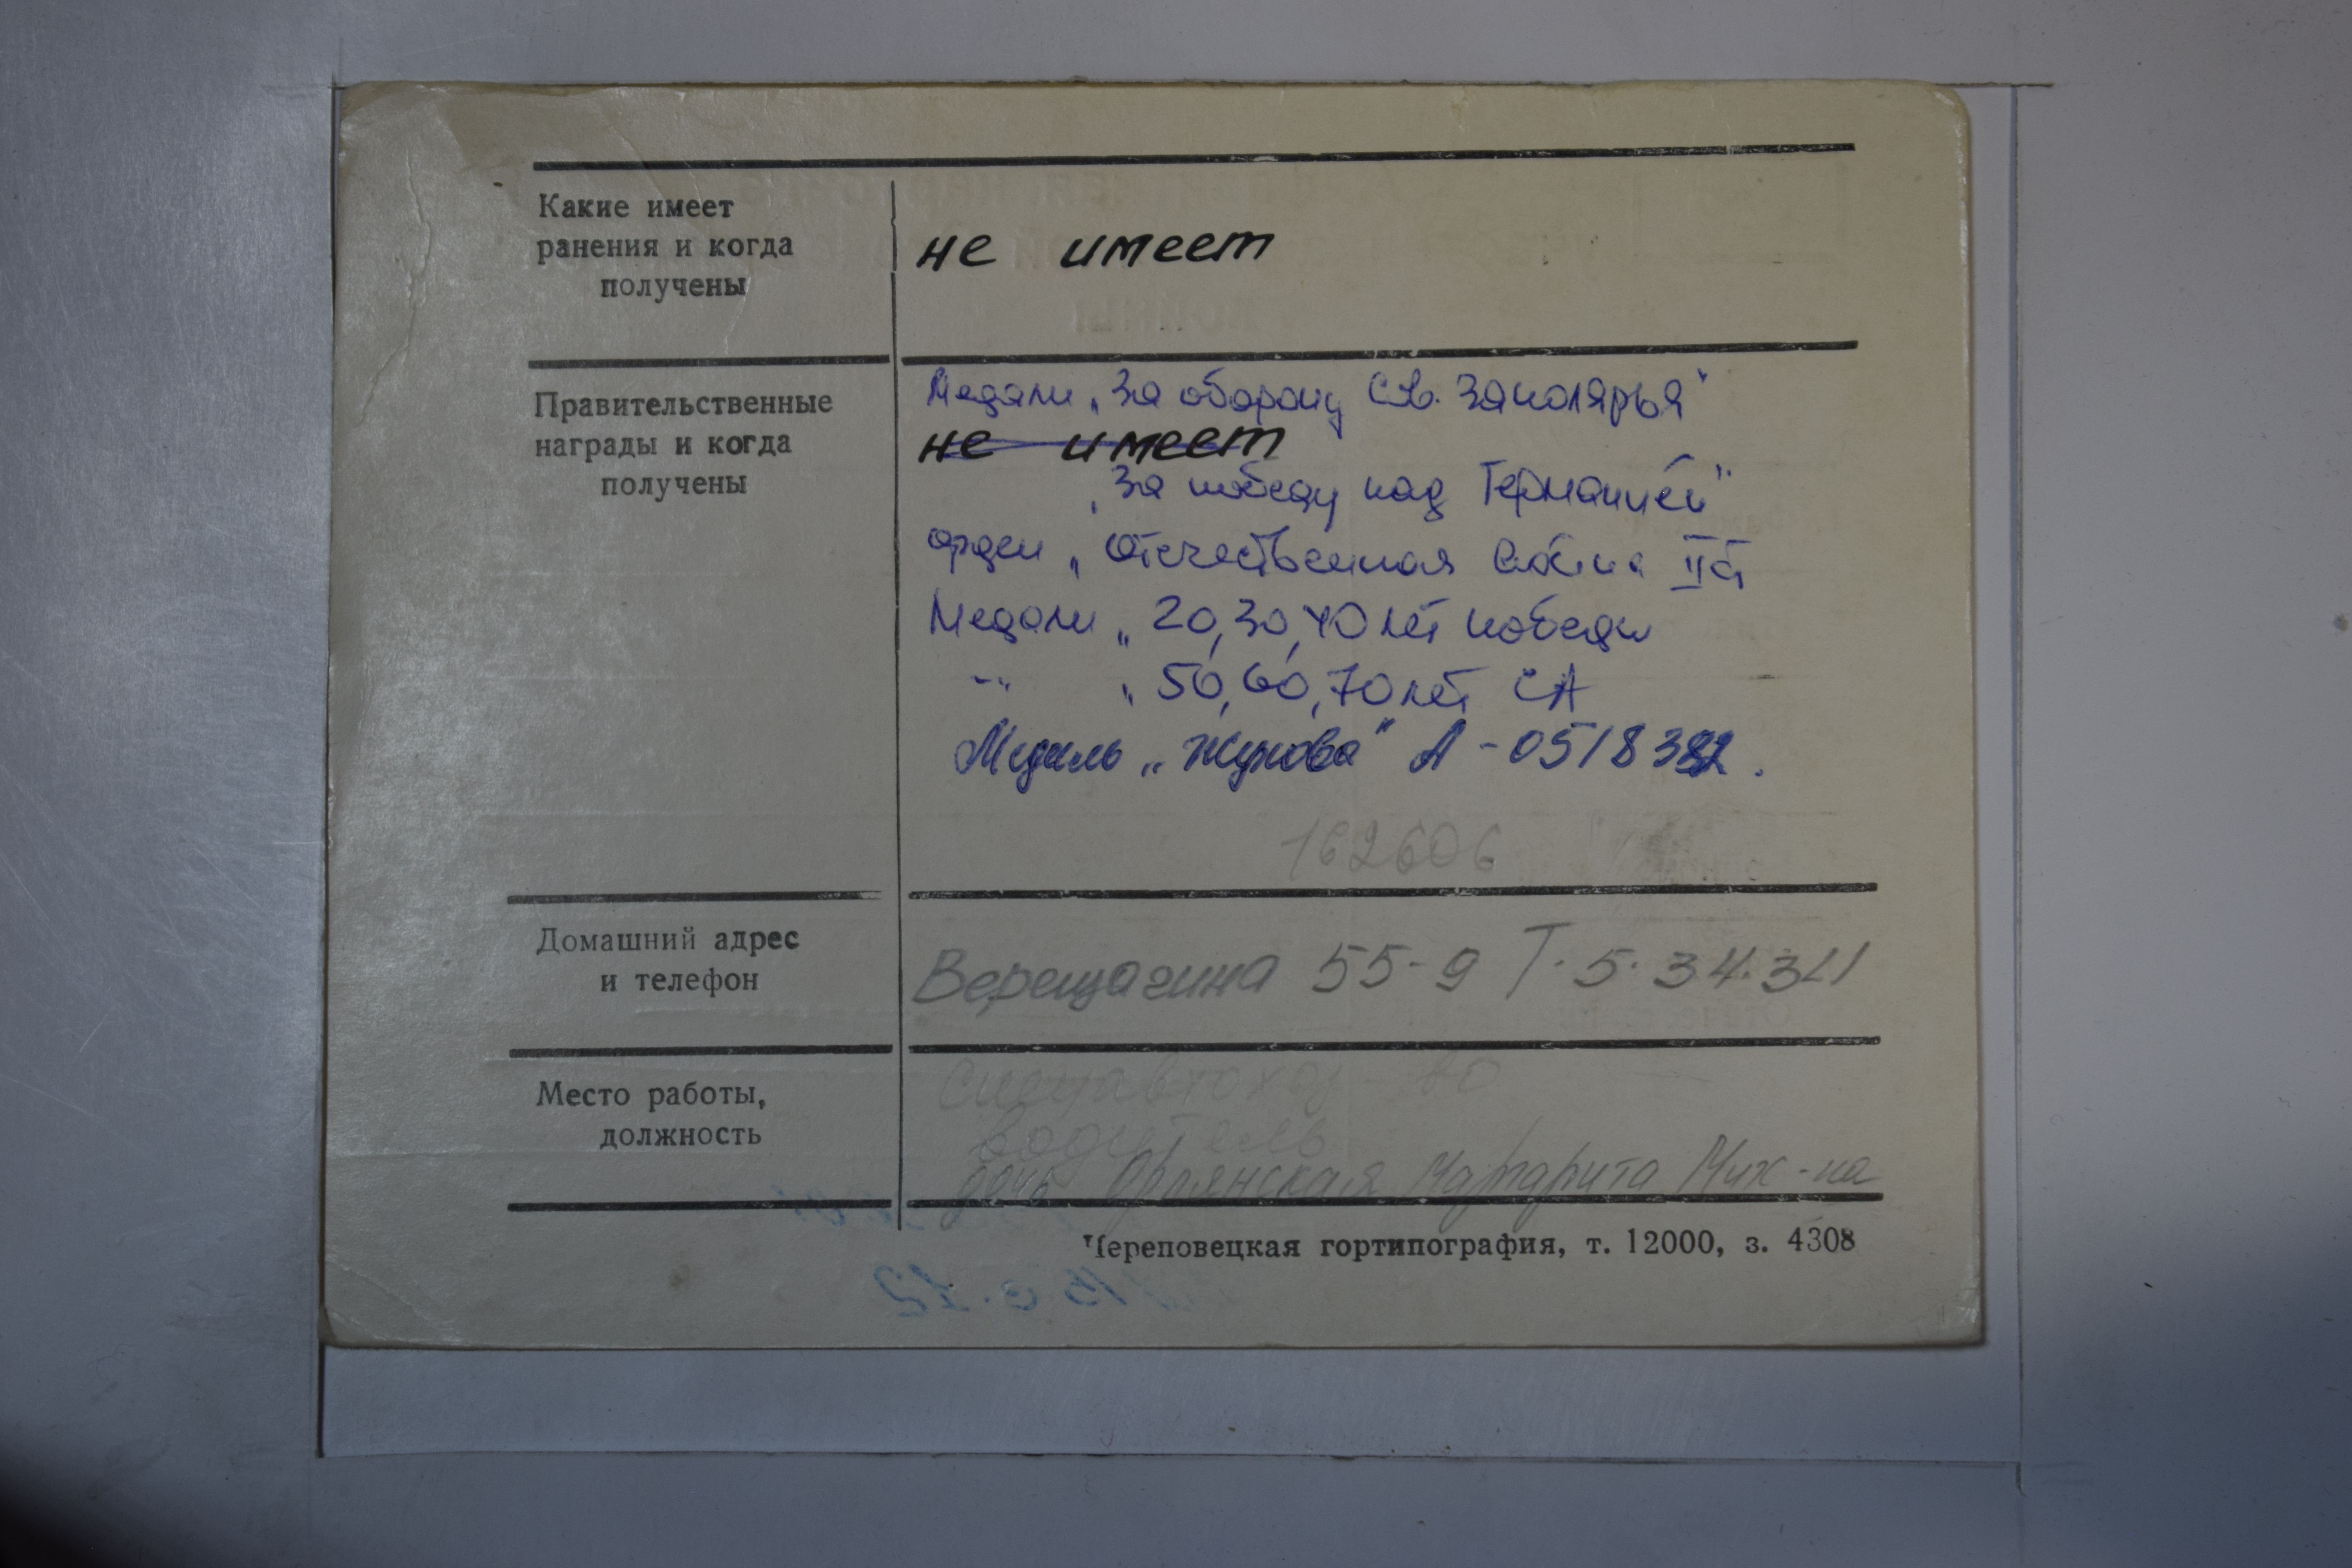 Какие имеет
ранения и когда
получены
не имеет
Правительственные
награды и когда
получены
Медали „За оборону Сов. Заполярья"
не имеет
„За победу над Германией"
орден „Отечественная война II ст
Медали „20, 30, 40 лет победы
-"- „50, 60, 70 лет СА
Медаль „Жукова" А - 0518382.
162606
Домашний адрес
и телефон
Верещагина 55-9 Т. 5. 34.34
Место работы,
должность
водитель
дочь Орлянская Маргарита Мих-на
Череповецкая гортипография, т. 12000, з. 4308